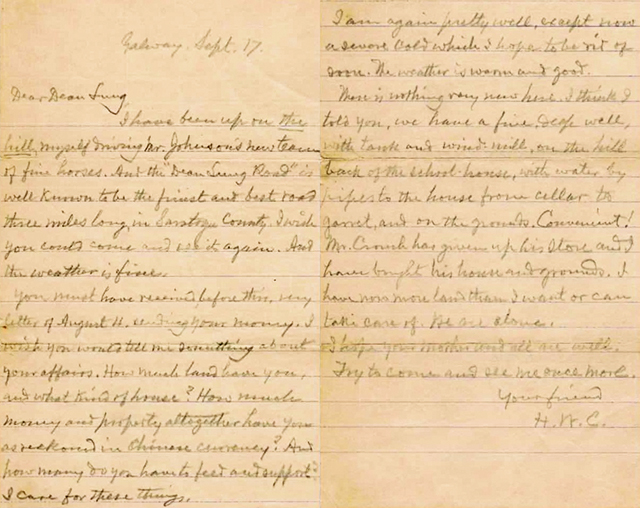 Galway, Sept. 17.
Dear Dean Lung
I have been up on the
hill, myself driving Mr. Johnson's new team
of fine horses. And the "Dean Lung Road" is
well known to be the finest and best road
three miles long, in Saratoga County. I wish
you could come and see it again. And
the weather is fine.
You must have received before this, my
letter of August 4. sending your money. I
wish you would tell me something about
your affairs. How much land have you,
and what kind of house? How much
money and property altogether have you
as reckoned in Chinese currency? And
how many do you have to feed and support?
I care for these things.
I am again pretty well, except now
a severe cold which I hope to be rid of
soon. The weather is warm and good.
There is nothing very new here. I think I
told you, we have a fine deep well,
with tank and wind-mill, on the hill
back of the school-house, with water by
pipes to the house from cellar to
garret, and on the grounds. Convenient!
Mr. Crouch has given up his store and I
have bought his house and grounds. I
have now more land than I want or can
take care of.
I hope your mother and all are well.
Try to come and see me once more.
Your friend
H. W. C.